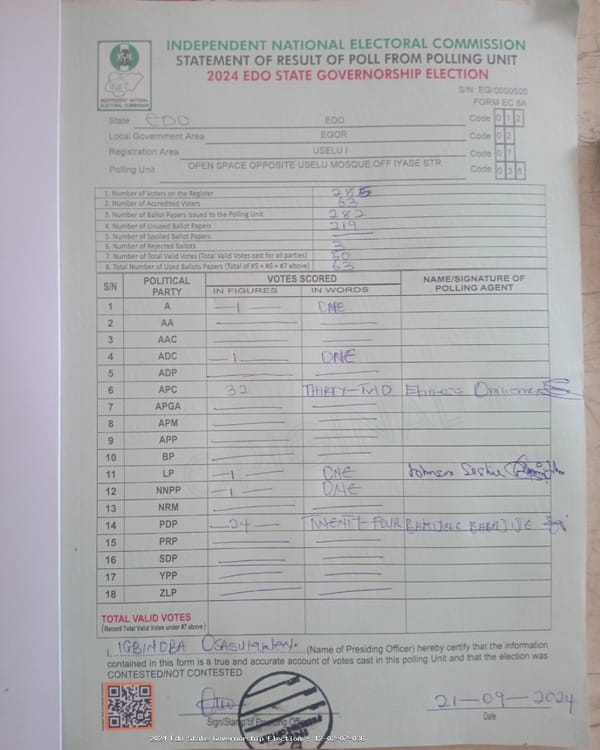 INDEPENDENT NATIONAL ELECTORAL COMMISSION
STATEMENT OF RESULT OF POLL FROM POLLING UNIT
2024 EDO STATE GOVERNORSHIP ELECTION
INEC
INDEPENDENT NATIONAL ELECTORAL COMMISSION
S/N: EG/0000500
FORM EC 8A
State EDO EDO Code 0 1 2
Local Government Area EGOR Code 0 2
Registration Area USELU I Code 0 7
Polling Unit OPEN SPACE OPPOSITE USELU MOSQUE.OFF IYASE STR. Code 0 3 6
1. Number of Voters on the Register 285
2. Number of Accredited Voters 63
3. Number of Ballot Papers Issued to the Polling Unit 282
4. Number of Unused Ballot Papers 219
5. Number of Spoiled Ballot Papers —
6. Number of Rejected Ballots 3
7. Number of Total Valid Votes (Total Valid Votes cast for all parties) 60
8. Total Number of Used Ballots Papers (Total of #5 + #6 + #7 above) 63
S/N POLITICAL PARTY VOTES SCORED NAME/SIGNATURE OF POLLING AGENT
IN FIGURES IN WORDS
1 A —1— ONE
2 AA
3 AAC
4 ADC —1— ONE
5 ADP
6 APC 32 THIRTY-TWO
7 APGA
8 APM
9 APP
10 BP
11 LP —1— ONE Johnson
12 NNPP —1— ONE
13 NRM
14 PDP —24— TWENTY-FOUR
15 PRP
16 SDP
17 YPP
18 ZLP
TOTAL VALID VOTES
(Record Total Valid Votes under #7 above)
I, IGBINOBA (Name of Presiding Officer) hereby certify that the information
contained in this form is a true and accurate account of votes cast in this polling Unit and that the election was
CONTESTED/NOT CONTESTED
21-09-2024
Sign/Stamp of Presiding Officer Date
2024 Edo State Governorship Election - 12-02-07-036